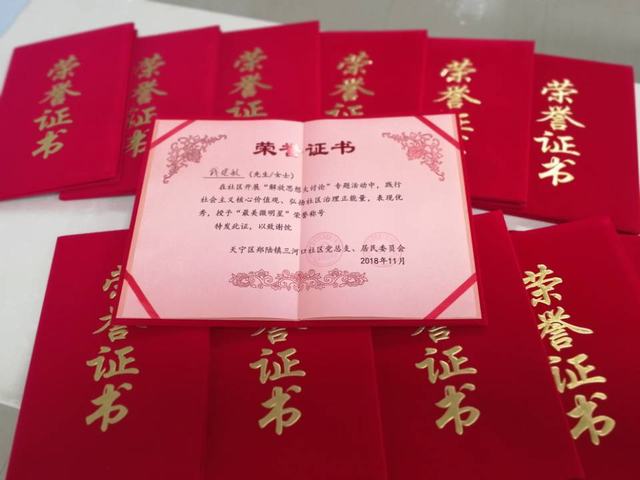 荣誉证书
荣誉证书
荣誉证书
荣誉证书
荣誉证书
荣誉证书
荣誉证书
钱建敏 (先生/女士)
在社区开展“解放思想大讨论”专题活动中，践行
社会主义核心价值观、弘扬社区治理正能量，表现优
秀，授予“最美微明星”荣誉称号
特发此证，以致谢忱
天宁区郑陆镇三河口社区党总支、居民委员会
2018年11月
誉证书
誉证书
誉证书
荣誉证书